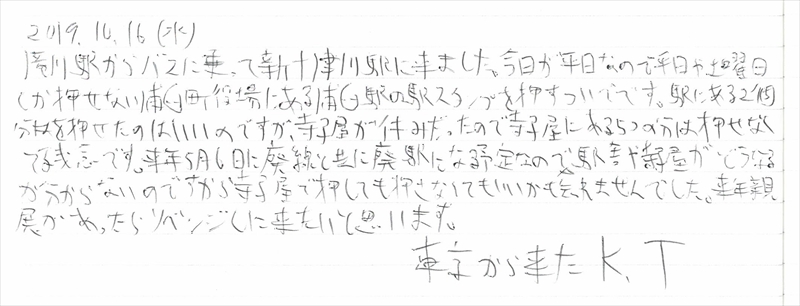 2019.10.16(水)
滝川駅からバスに乗って新十津川駅に来ました。今日が平日なので平日や土曜日
しか押せない浦臼町役場にある浦臼駅の駅スタンプを押すついでです。駅にある2個
分は押せたのはいいのですが、寺子屋が休みだったので寺子屋にある5つの分は押せなく
て残念です。来年5月6日に廃線と共に廃駅になる予定なので駅や寺子屋がどうなる
か分からないのですから寺子屋で押しても押さなくてもいいかも しれませんでした。来年
があったらリベンジしに来たいと思います。
東京から来たK.T